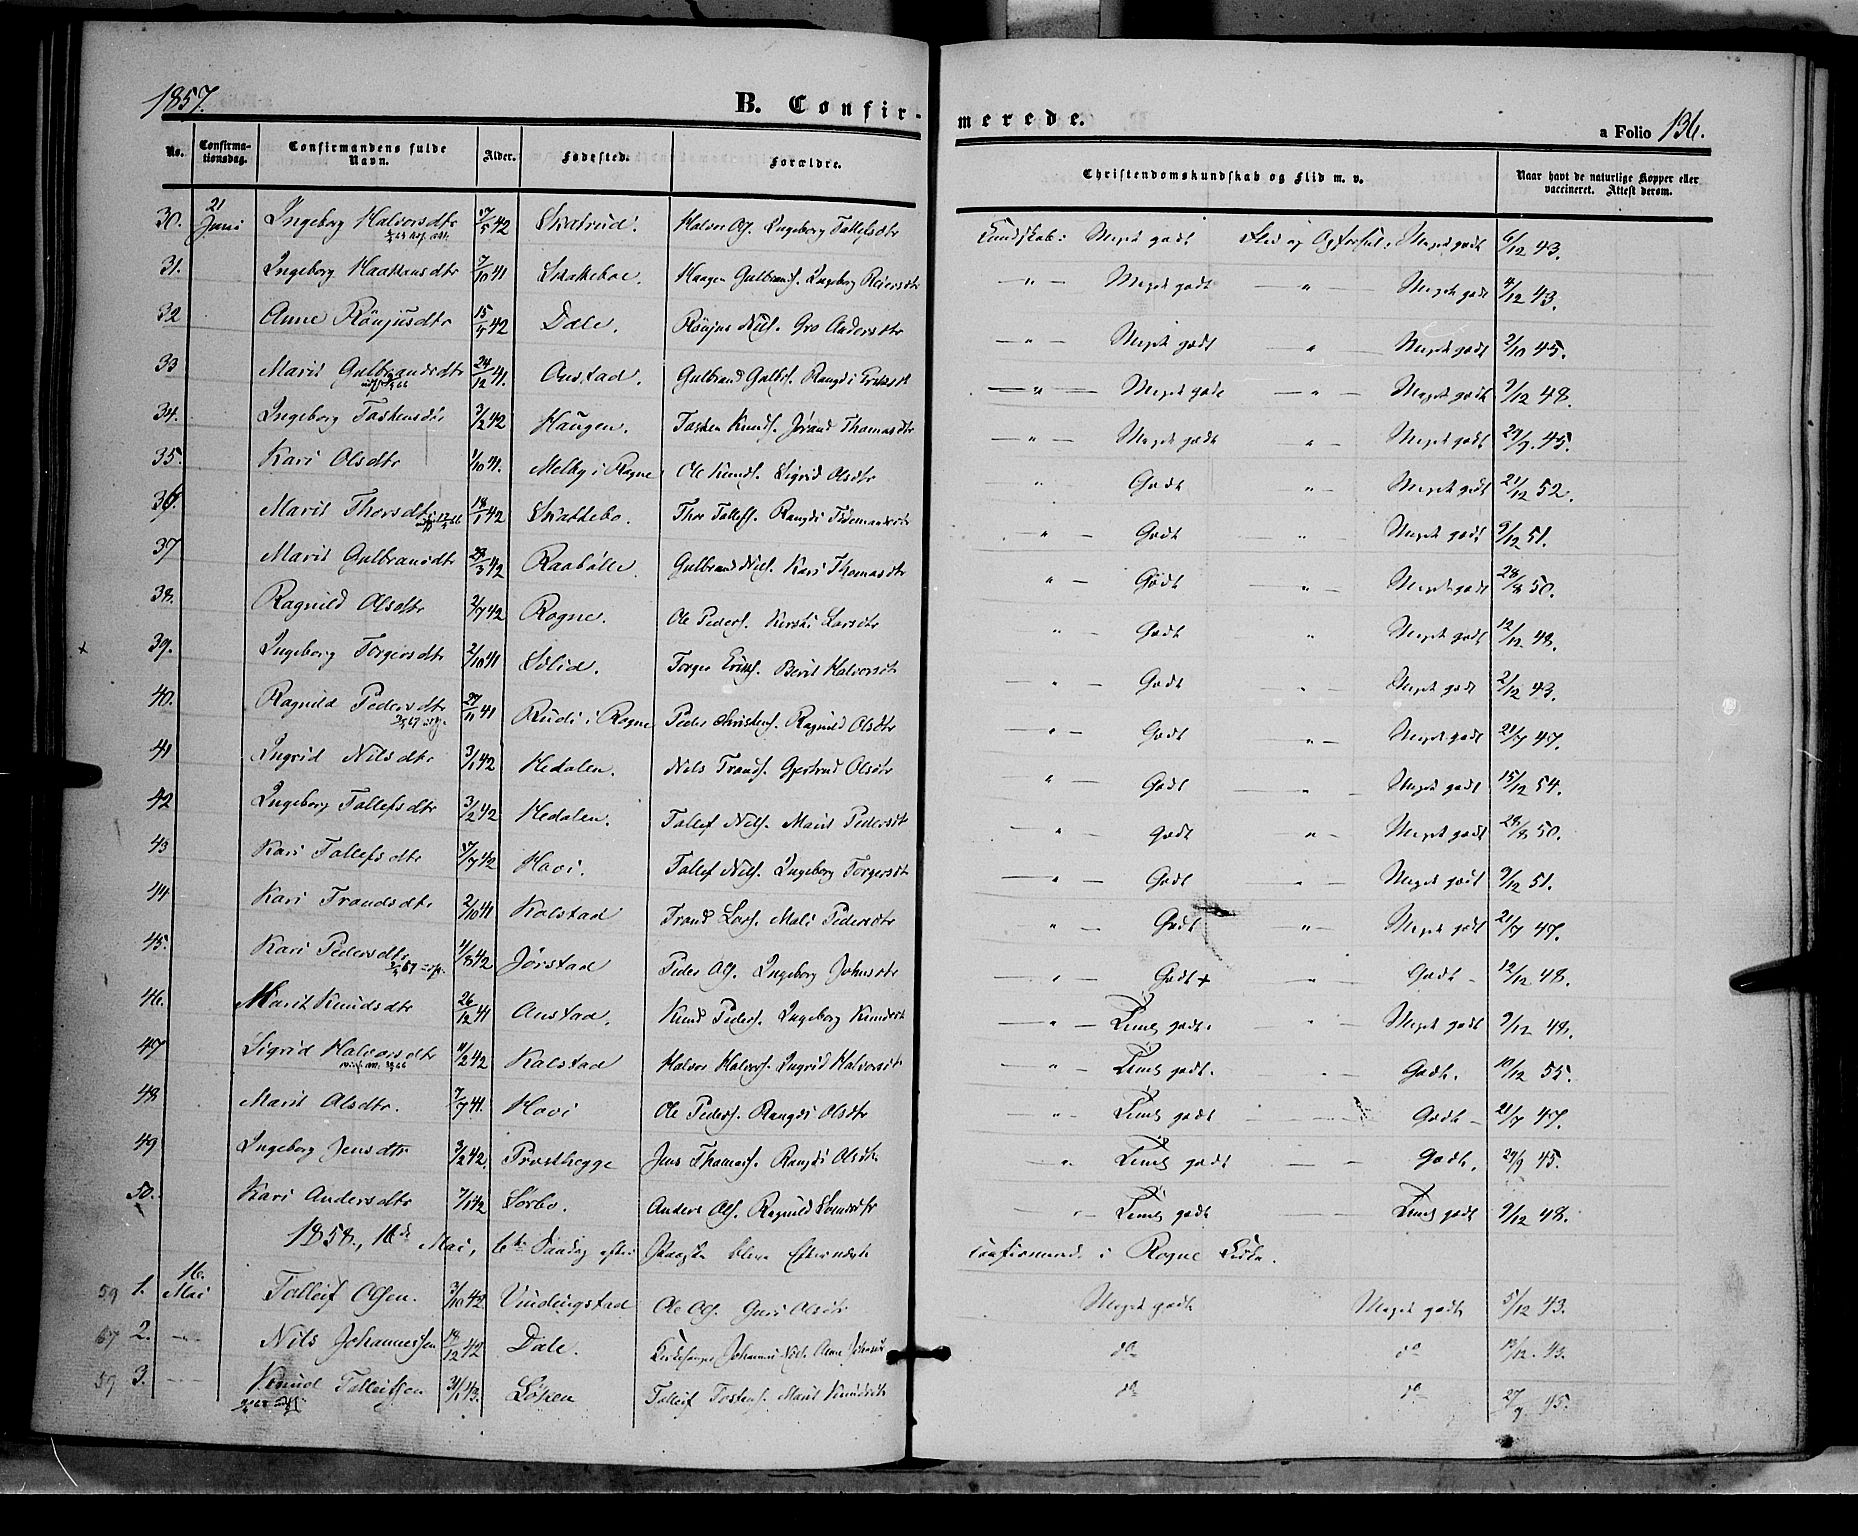 1857. B. Confir- merede. a Folio 136.
No. Confirma-tionsdag. Confirmandens fulde Navn. Alder. Fødested. Forældre. Christendomskundskab og Flid m. v. Naar havt de naturlige Kopper eller vaccineret. Attest derom.
30. 21 Juni Ingeborg Halvorsdtr 17/5 42 Skatrud. Halvor Ols. Ingeborg Tollefsdtr Kundskab: Meget godt Flid og Meget godt 6/12 43.
31. Ingeborg Haakensdtr 7/10 41 Skatteboe. Haagen Gulbrands. Ingeborg Reiersdtr " Meget godt " Meget godt 4/12 43.
32 Anne Rönjusdtr 15/5 42 Dale. Rönjus Nils. Gro Andersdtr " Meget godt " Meget godt 2/10 45.
33 Marit Gulbrandsdtr 24/12 41. Onstad. Gulbrand Gulbs. Rangdi " Meget godt " Meget godt 9/12 48.
34. Ingeborg Tostensdtr 3/2 42 Haugen. Tosten Knuds. Jörand Thomasdtr " Meget godt " Meget godt 29/9 45.
35. Kari Olsdtr 1/10 41. Melby i Rogne Ole Knuds. Sigrid Olsdtr " Godt " Meget godt 21/12 52.
36. Marit Thorsdtr 18/1 42 Skattebo. Thor Tollefs. Rangdi Tidemandsdtr " Godt " Meget godt 9/12 51.
37 Marit Gulbransdtr 23/3 42 Raabölle. Gulbrand Nils. Kari Thomasdtr " Godt " Meget godt 28/8 50.
38. Ragnild Olsdtr 2/7 42 Rogne. Ole Peders. Kersti Larsdtr " Godt " Meget godt 12/12 48.
39. Ingeborg Torgersdtr 2/10 41 Sölid. Torger Eriks. Berit Halvorsdtr " Godt " Meget godt 2/12 43.
40. Ragnild Pedersdtr 27/11 41 Rudi i Rogne Peder Christens. Ragnild Olsdtr " Godt " Meget godt 21/7 47.
41 Ingrid Nilsdtr 3/1 42 Hedalen. Nils Trands. Gjertrud Olsdtr " Godt " Meget godt 15/12 54.
42 Ingeborg Tollefsdtr 3/2 42 Hedalen. Tollef Nils. Marit Pedersdtr " godt " Meget godt 28/8 50.
43 Kari Tollefsdtr 17/7 42 Hovi. Tollef Nils. Ingeborg Torgersdtr " Godt " Meget godt 9/12 51.
44 Kari Trandsdtr 2/10 41 Kolstad Trand Lars. Mali Pedersdtr " Godt " Meget godt 21/7 47.
45. Kari Pedersdtr 11/8 42 Jörstad Peder Ols. Ingeborg Johnsdtr " Godt + " Godt 12/12 48.
46. Marit Knudsdtr 26/12 41 Onstad. Knud Peders. Ingeborg Knudsdtr " Temlg godt. " Meget godt 9/12 48.
47 Sigrid Halvorsdtr 11/2 42 Kalstad Halvor Halvors. Ingrid Halvorsdtr " Temlg godt. Godt. 10/12 55.
48 Marit Olsdtr. 7/7 41. Hovi Ole Peders. Rangdi Olsdtr " Temlg godt Godt 21/7 47.
49 Ingeborg Jensdtr 3/2 42. Prosthegge Jens Thomas. Rangdi Olsdtr " Temlg godt Godt. 29/9 45.
50. Kari Andersdtr 7/1 42 Sörbo. Anders Ols. Ragnild Svendsdtr " Temlg godt Temlg godt 9/12 48.
1858, 16de Mai, 6te Söndag efter Paaske bleve Efternævnte confirmerede i Rogne Kirke.
59 1. 16. Mai Tolleif Olsen. 3/10 42 Vindingstad Ole Ols. Guri Olsdtr Meget godt Meget godt 5/12 43.
67 2. Nils Johannessen 18/12 42 Dale. Kirkesanger Johannes Nils. Anne do do 12/12. 43.
59 3. Knud Tolleifsen 31/1 43. Löken Tolleif Tostens. Marit Knudsdtr do do 27/9. 45.